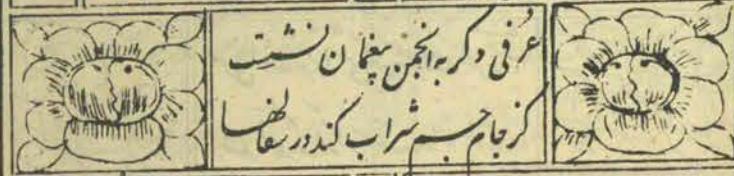 عرفی دگر به انجمن بیغمان نشست
کز جام جم شراب کند در سفالها